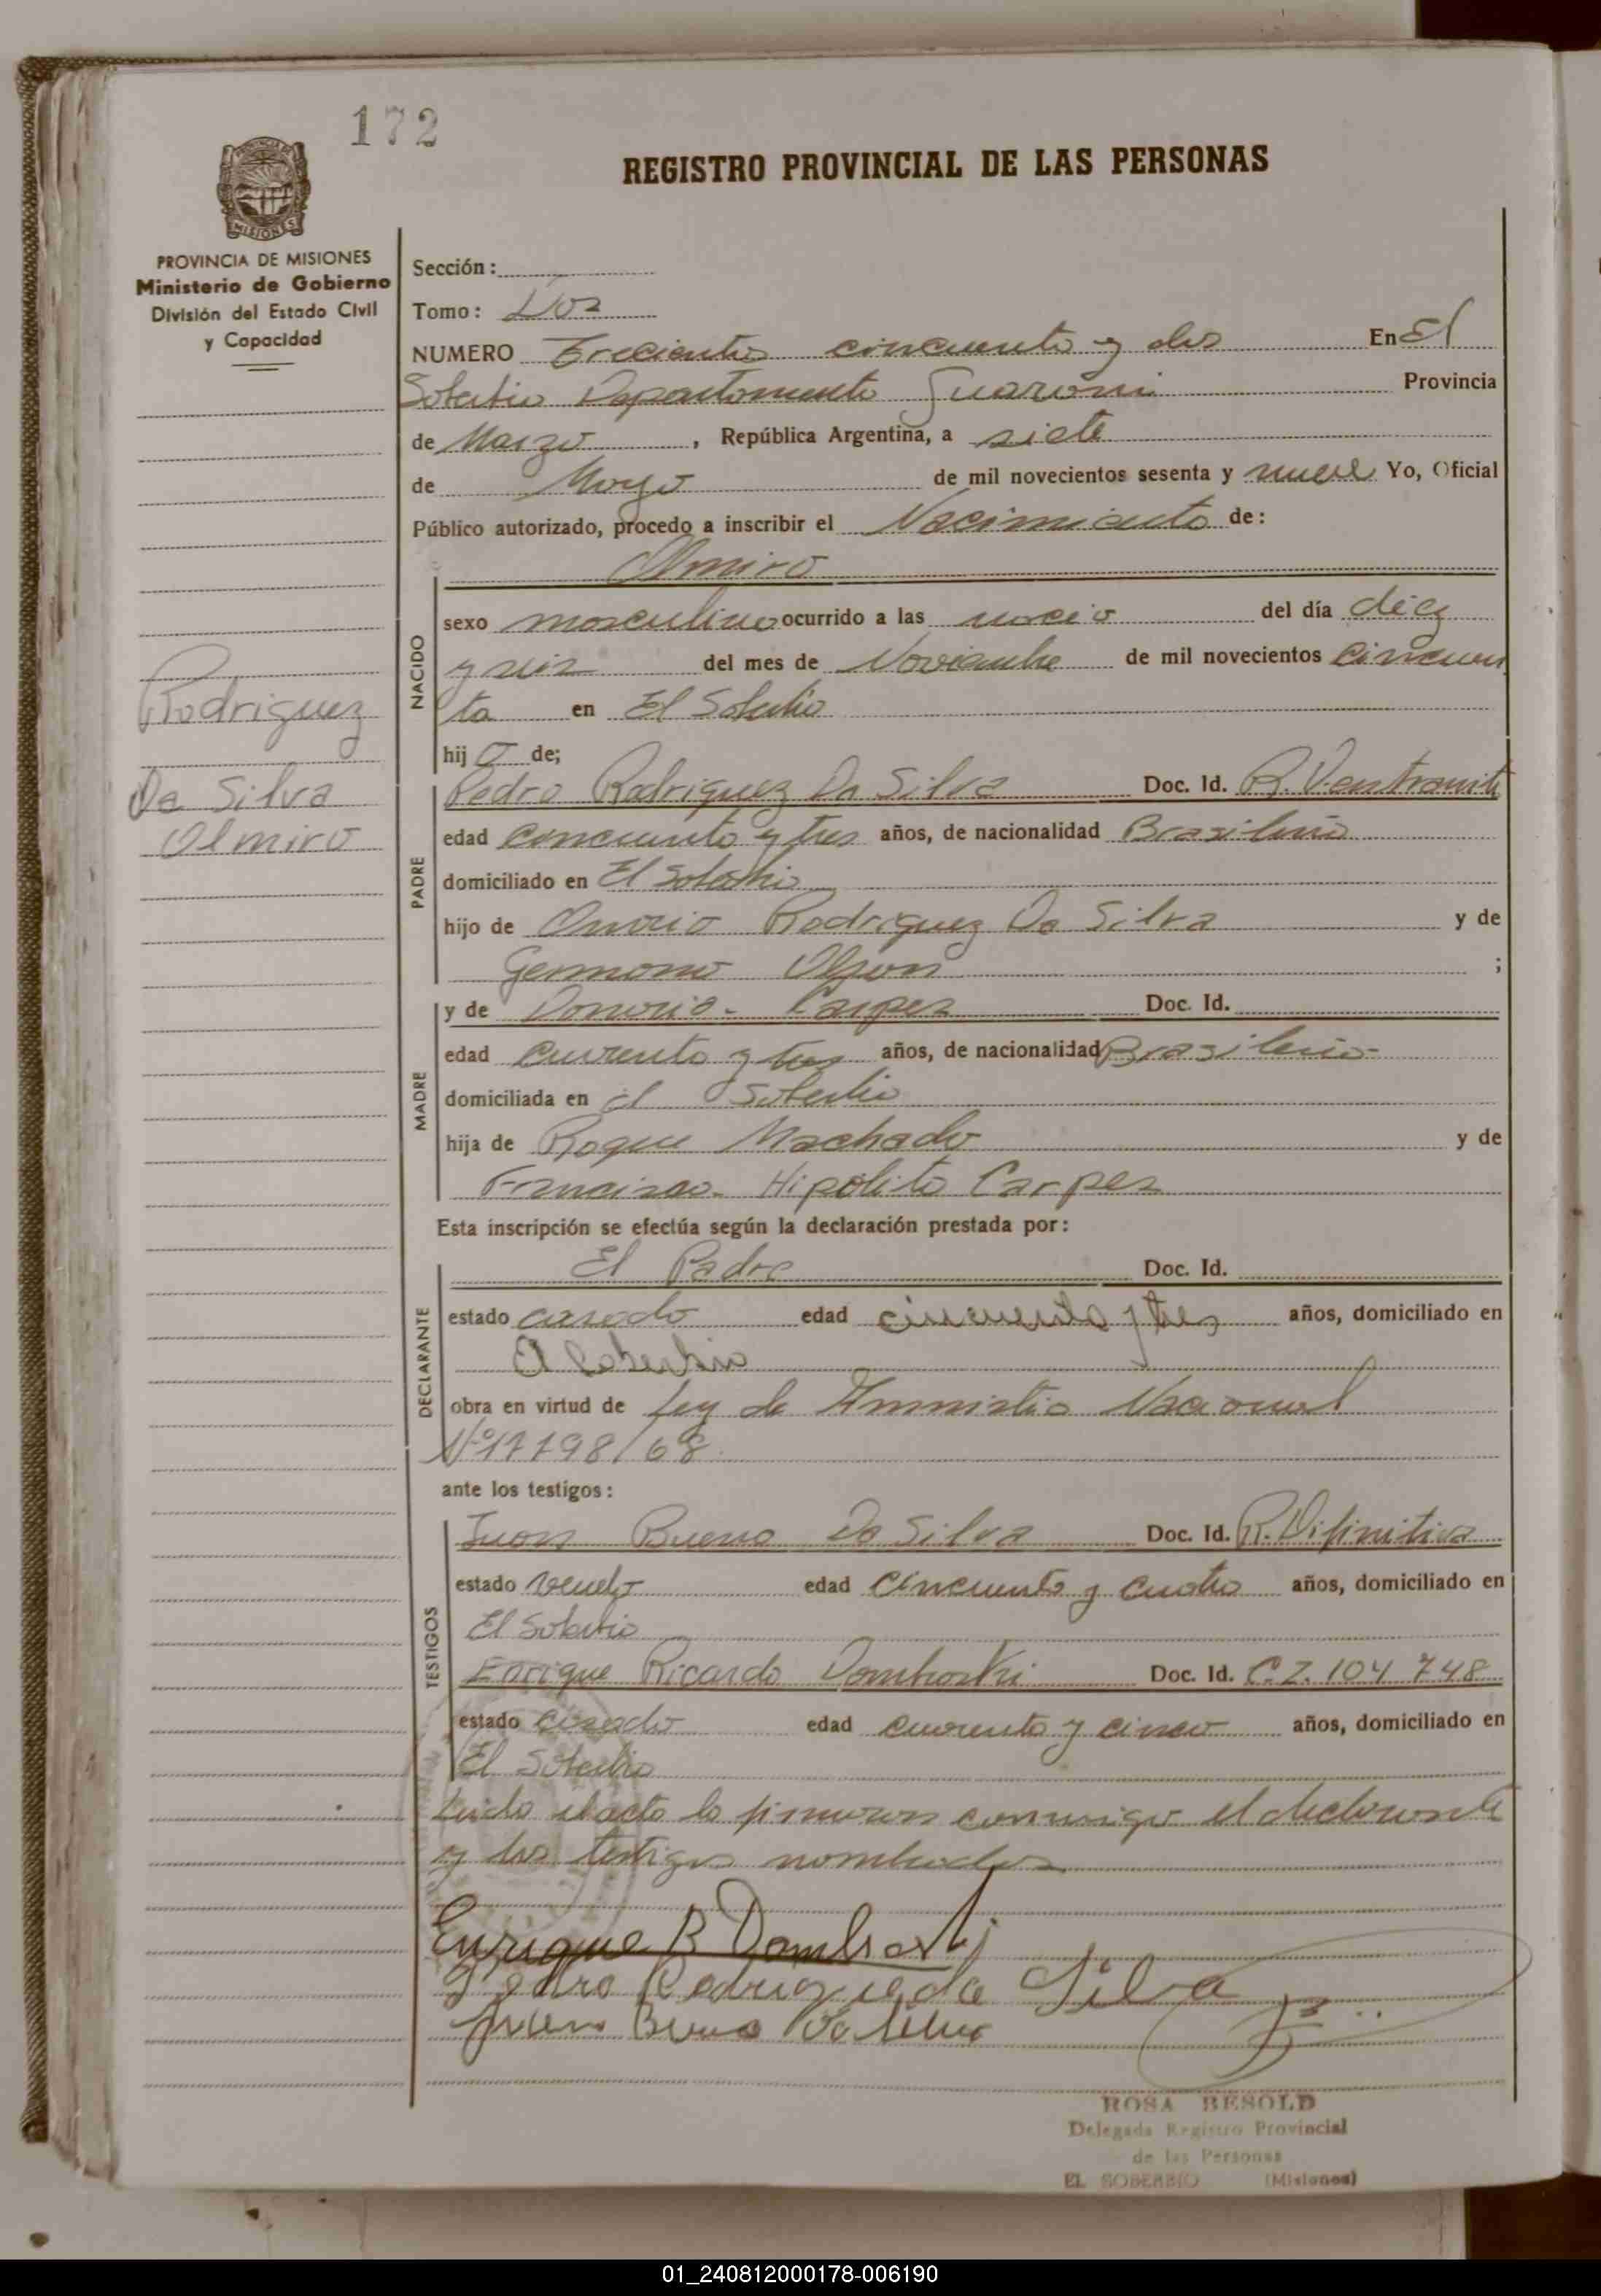 172
REGISTRO PROVINCIAL DE LAS PERSONAS
PROVINCIA DE MISIONES
Ministerio de Gobierno
División del Estado Civil
y Capacidad
Rodriguez
Da Silva
Olmiro
Sección:
Tomo: Dos
NUMERO Trecientos cincuenta y dos En El
Soberbio Departamento Guarani Provincia
de Marzo, República Argentina, a siete
de Mayo de mil novecientos sesenta y nueve Yo, Oficial
Público autorizado, procedo a inscribir el Nacimiento de:
Olmiro
NACIDO
sexo masculino ocurrido a las del día diez
y seis del mes de Noviembre de mil novecientos cincuen
ta en El Soberbio
hijo de;
PADRE
Pedro Rodriguez Da Silva Doc. Id.
edad cincuenta y tres años, de nacionalidad Brasileña
domiciliado en El Soberbio
hijo de Onorio Rodriguez Da Silva y de
Germana ;
MADRE
y de Carpes Doc. Id.
edad cuarenta y tres años, de nacionalidad Brasileña
domiciliada en el Soberbio
hija de Roque Machado y de
Francisca Hipolita Carpes
Esta inscripción se efectúa según la declaración prestada por:
DECLARANTE
El Padre Doc. Id.
estado casado edad cincuenta y tres años, domiciliado en
El Soberbio
obra en virtud de Ley de Amnistia Nacional
Nº 17798/68
ante los testigos:
TESTIGOS
Juan Bueno Da Silva Doc. Id. R. Difinitiva
estado edad cincuenta y cuatro años, domiciliado en
El Soberbio
Enrique Ricardo Dombroski Doc. Id. C.I. 104 748
estado casado edad cuarenta y cinco años, domiciliado en
El Soberbio
Leido el acto lo firmaron conmigo el declarante
y los testigos nombrados
Enrique R Dombroski
Pedro Rodrigue da Silva
Juan Bueno Da Silva
ROSA BESOLD
Delegada Registro Provincial
de las Personas
EL SOBERBIO (Misiones)
01_240812000178-006190